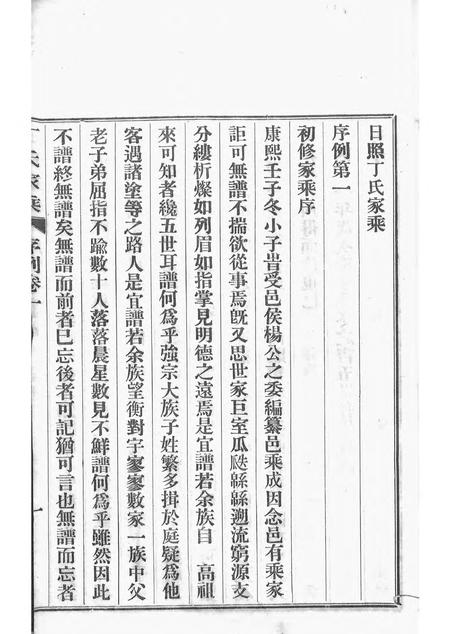 日照丁氏家乘
序例第一
初修家乘序
康熙壬子冬小子旹受邑侯楊公之委編纂邑乘成因念邑有乘家
詎可無譜不揣欲從事焉旣又思世家巨室瓜瓞緜緜遡流窮源支
分縷析燦如列眉如指掌見明德之遠焉是宜譜若余族自　高祖
來可知者纔五世耳譜何爲乎強宗大族子姓繁多揖於庭疑爲他
客遇諸塗等之路人是宜譜若余族望衡對宇寥寥數家一族中父
老子弟屈指不踰數十人落落晨星數見不鮮譜何爲乎雖然因此
不譜終無譜矣無譜而前者已忘後者可記猶可言也無譜而忘者
丁氏家乘　序例卷一　一